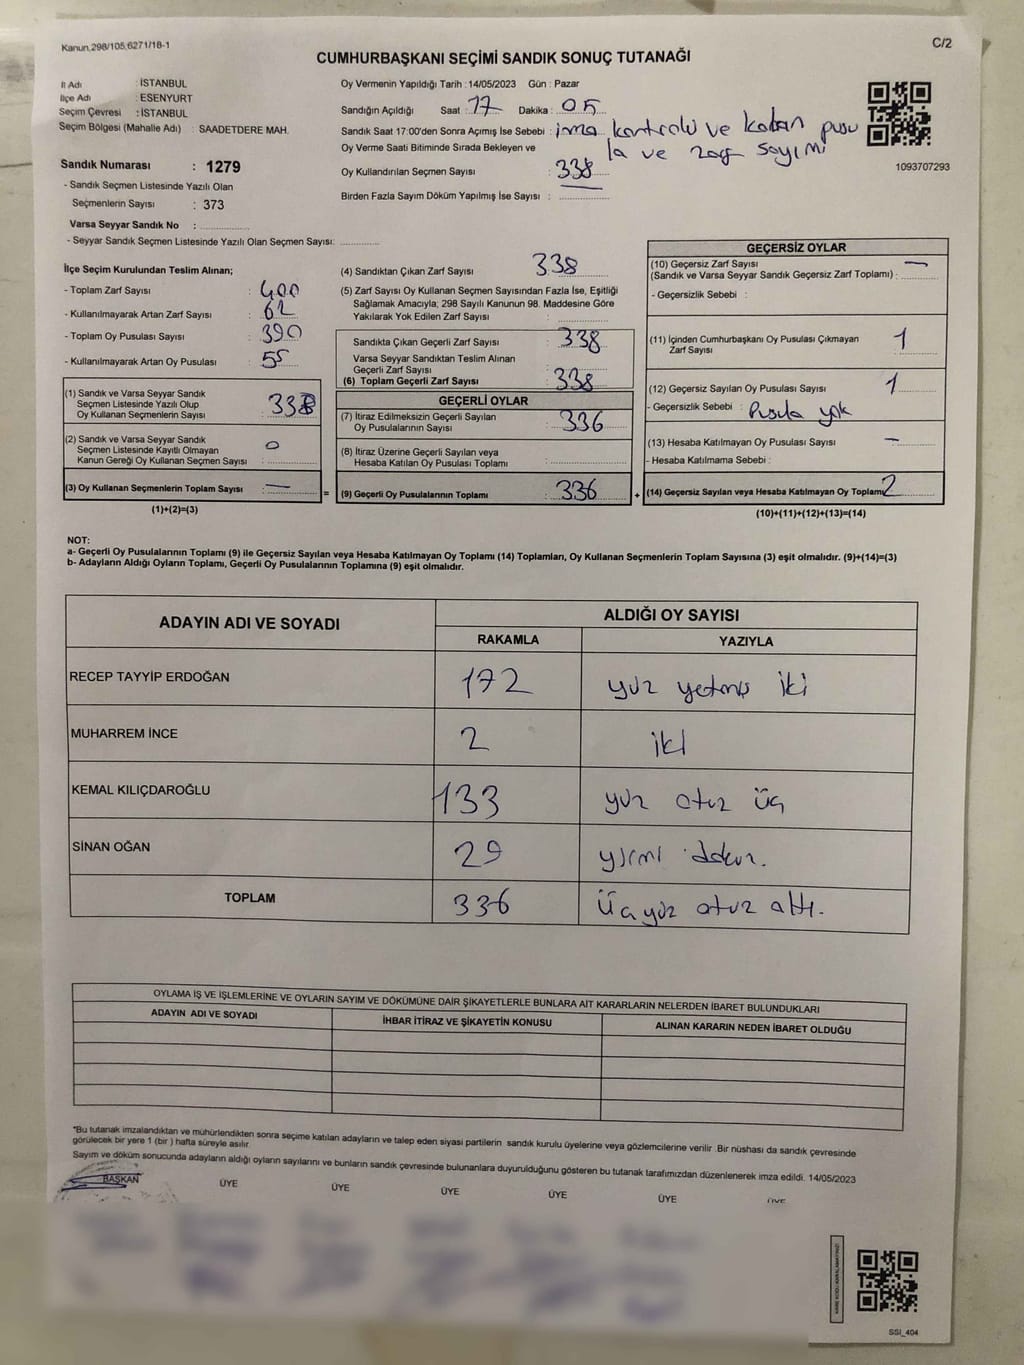 Kanun,298/105,6271/18-1
C/2
CUMHURBAŞKANI SEÇİMİ SANDIK SONUÇ TUTANAĞI
İl Adı : İSTANBUL
İlçe Adı : ESENYURT
Seçim Çevresi : İSTANBUL
Seçim Bölgesi (Mahalle Adı) : SAADETDERE MAH.
Sandık Numarası : 1279
- Sandık Seçmen Listesinde Yazılı Olan
Seçmenlerin Sayısı : 373
Varsa Seyyar Sandık No :
- Seyyar Sandık Seçmen Listesinde Yazılı Olan Seçmen Sayısı:
Oy Vermenin Yapıldığı Tarih : 14/05/2023 Gün : Pazar
Sandığın Açıldığı Saat : 17 Dakika : 05
Sandık Saat 17:00'den Sonra Açımış İse Sebebi : imza kontrolü ve kalan pusu
la ve zarf sayımı
Oy Verme Saati Bitiminde Sırada Bekleyen ve
Oy Kullandırılan Seçmen Sayısı : 338
Birden Fazla Sayım Döküm Yapılmış İse Sayısı :
1093707293
İlçe Seçim Kurulundan Teslim Alınan;
- Toplam Zarf Sayısı : 400
- Kullanılmayarak Artan Zarf Sayısı : 62
- Toplam Oy Pusulası Sayısı : 390
- Kullanılmayarak Artan Oy Pusulası : 55
(1) Sandık ve Varsa Seyyar Sandık
Seçmen Listesinde Yazılı Olup
Oy Kullanan Seçmenlerin Sayısı : 338
(2) Sandık ve Varsa Seyyar Sandık
Seçmen Listesinde Kayıtlı Olmayan
Kanun Gereği Oy Kullanan Seçmen Sayısı : 0
(3) Oy Kullanan Seçmenlerin Toplam Sayısı : —
(1)+(2)=(3)
(4) Sandıktan Çıkan Zarf Sayısı : 338
(5) Zarf Sayısı Oy Kullanan Seçmen Sayısından Fazla İse, Eşitliği
Sağlamak Amacıyla; 298 Sayılı Kanunun 98. Maddesine Göre
Yakılarak Yok Edilen Zarf Sayısı :
Sandıkta Çıkan Geçerli Zarf Sayısı : 338
Varsa Seyyar Sandıktan Teslim Alınan
Geçerli Zarf Sayısı :
(6) Toplam Geçerli Zarf Sayısı : 338
GEÇERLİ OYLAR
(7) İtiraz Edilmeksizin Geçerli Sayılan
Oy Pusulalarının Sayısı : 336
(8) İtiraz Üzerine Geçerli Sayılan veya
Hesaba Katılan Oy Pusulası Toplamı :
= (9) Geçerli Oy Pusulalarının Toplamı : 336 +
GEÇERSİZ OYLAR
(10) Geçersiz Zarf Sayısı —
(Sandık ve Varsa Seyyar Sandık Geçersiz Zarf Toplamı) :
- Geçersizlik Sebebi :
(11) İçinden Cumhurbaşkanı Oy Pusulası Çıkmayan
Zarf Sayısı : 1
(12) Geçersiz Sayılan Oy Pusulası Sayısı : 1
- Geçersizlik Sebebi : Pusula yok
(13) Hesaba Katılmayan Oy Pusulası Sayısı : —
- Hesaba Katılmama Sebebi :
(14) Geçersiz Sayılan veya Hesaba Katılmayan Oy Toplamı 2
(10)+(11)+(12)+(13)=(14)
NOT:
a- Geçerli Oy Pusulalarının Toplamı (9) ile Geçersiz Sayılan veya Hesaba Katılmayan Oy Toplamı (14) Toplamları, Oy Kullanan Seçmenlerin Toplam Sayısına (3) eşit olmalıdır. (9)+(14)=(3)
b- Adayların Aldığı Oyların Toplamı, Geçerli Oy Pusulalarının Toplamına (9) eşit olmalıdır.
ADAYIN ADI VE SOYADI ALDIĞI OY SAYISI
RAKAMLA YAZIYLA
RECEP TAYYİP ERDOĞAN 172 yüz yetmiş iki
MUHARREM İNCE 2 iki
KEMAL KILIÇDAROĞLU 133 yüz otuz üç
SİNAN OĞAN 29 yirmi dokuz.
TOPLAM 336 Üçyüz otuz altı.
OYLAMA İŞ VE İŞLEMLERİNE VE OYLARIN SAYIM VE DÖKÜMÜNE DAİR ŞİKAYETLERLE BUNLARA AİT KARARLARIN NELERDEN İBARET BULUNDUKLARI
ADAYIN ADI VE SOYADI İHBAR İTİRAZ VE ŞİKAYETİN KONUSU ALINAN KARARIN NEDEN İBARET OLDUĞU
"Bu tutanak imzalandıktan ve mühürlendikten sonra seçime katılan adayların ve talep eden siyasi partilerin sandık kurulu üyelerine veya gözlemcilerine verilir. Bir nüshası da sandık çevresinde
görülecek bir yere 1 (bir ) hafta süreyle asılır.
Sayım ve döküm sonucunda adayların aldığı oyların sayılarını ve bunların sandık çevresinde bulunanlara duyurulduğunu gösteren bu tutanak tarafımızdan düzenlenerek imza edildi. 14/05/2023
BAŞKAN ÜYE ÜYE ÜYE ÜYE ÜYE ÜYE
SSI_404